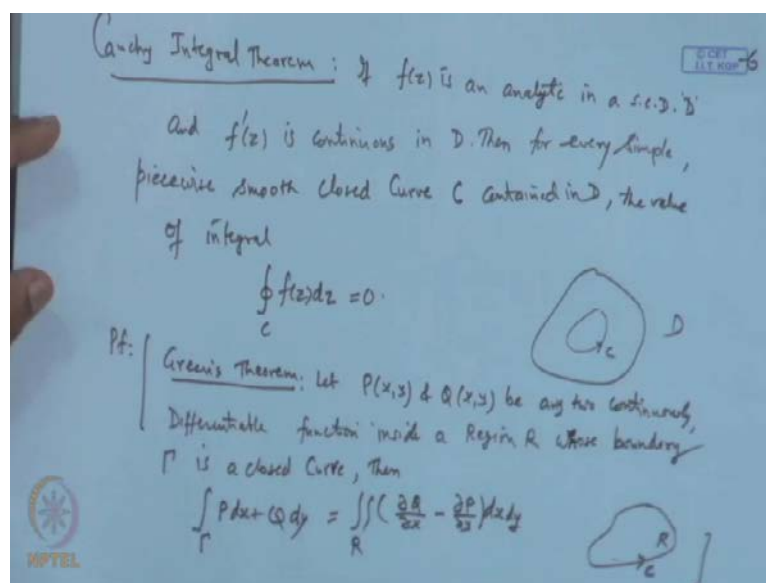 Cauchy Integral Theorem : If f(z) is an analytic in a s.c.D. 'D'
© CET
I.I.T. KGP
And f'(z) is continuous in D. Then for every simple,
piecewise smooth closed Curve C contained in D, the value
of integral
∮_C f(z)dz = 0.
D
C
Pf:
Green's Theorem: Let P(x,y) & Q(x,y) be any two continuously,
Differentiable function inside a Region R whose boundary
Γ is a closed Curve, Then
∫_Γ Pdx + Qdy = ∬_R (∂Q/∂x - ∂P/∂y) dxdy
R
C
NPTEL